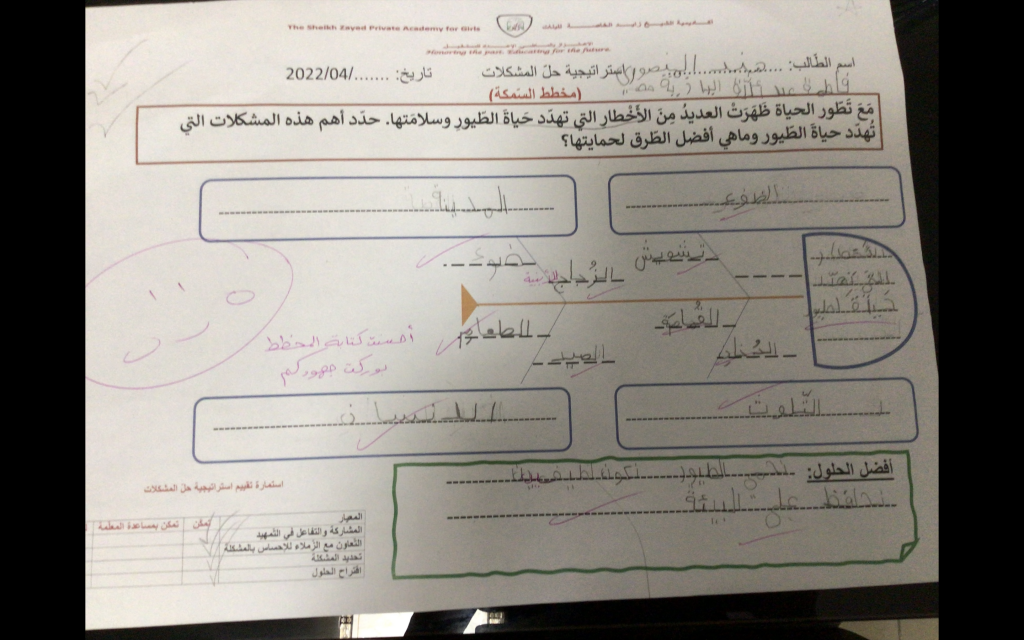 The Sheikh Zayed Private Academy for Girls
أكاديمية الشيخ زايد الخاصة للبنات
Honouring the past. Educating for the future.
اسم الطالب: هند المنصوري استراتيجية حلّ المشكلات تاريخ: ....../2022/04
(مخطط السمكة)
مَعَ تَطَور الحياة ظَهَرَتْ العديدُ مِنَ الأَخْطارِ التي تهدّد حَياةَ الطّيورِ وسلامَتها. حدّد أهم هذه المشكلات التي
تُهدّد حياةَ الطّيور وماهي أفضل الطّرق لحمايتها؟
الضوء
المدينة
تشويش
ضوء
الزُجاج
الأخطار
التي تهدد
حياة الطيور
القُمامة
الطعام
الصيد
أحسنت كتابة المخطط
بوركت جهودكم
التّلوث
الانسان
أفضل الحلول: نحمي الطيور نكون لطيفين
نحافظ على البيئة
استمارة تقييم استراتيجية حلّ المشكلات
المعيار تمكن تمكن بمساعدة المعلمة
المشاركة والتفاعل في التّمهيد
التّعاون مع الزّملاء للإحساس بالمشكلة
تحديد المشكلة
اقتراح الحلول